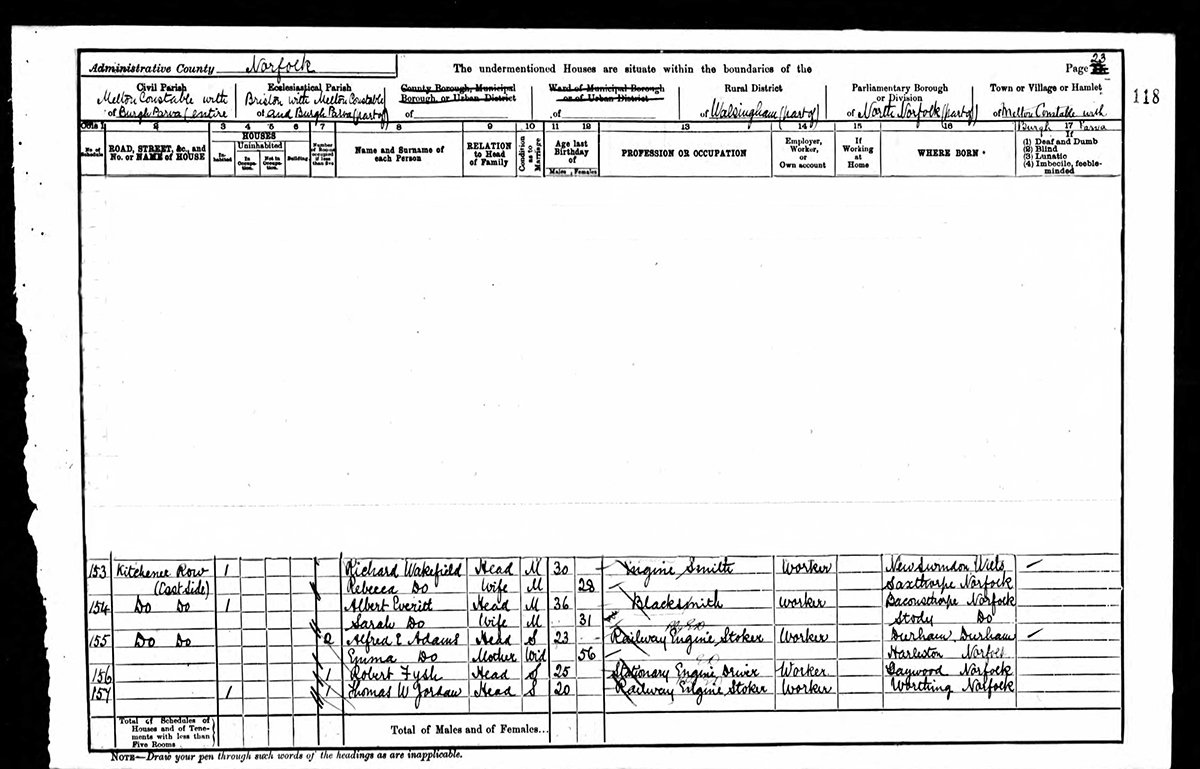 Administrative County Norfolk The undermentioned Houses are situate within the boundaries of the Page 23
Civil Parish Ecclesiastical Parish County Borough, Municipal Borough, or Urban District Ward of Municipal Borough or of Urban District Rural District Parliamentary Borough or Division Town or Village or Hamlet
118
of Melton Constable with Burgh Parva (entire of Briston with Melton Constable and Burgh Parva (part of) of of of Walsingham (part of) of North Norfolk (part of) of Melton Constable with Burgh Parva
Cols 1 2 3 4 5 6 7 8 9 10 11 12 13 14 15 16 17
No. of Schedule ROAD, STREET, &c., and No. or NAME of HOUSE HOUSES Inhabited Uninhabited In Occupation. Not in Occupation. Building. Number of Rooms occupied if less than five Name and Surname of each Person RELATION to Head of Family Condition as to Marriage Age last Birthday of Males Females PROFESSION OR OCCUPATION Employer, Worker, or Own account If Working at Home WHERE BORN If
(1) Deaf and Dumb
(2) Blind
(3) Lunatic
(4) Imbecile, feeble-minded
153 Kitchener Row 1 Richard Wakefield Head M 30 Engine Smith Worker New Swindon Wilts
(East Side) Rebecca Do Wife M 28 Saxthorpe Norfolk
154 Do Do 1 Albert Everitt Head M 36 Blacksmith Worker Baconsthorpe Norfolk
Sarah Do Wife M 31 Stody Do
155 Do Do 2 Alfred E Adams Head S 23 Railway Engine Stoker Worker Durham, Durham
Emma Do Mother Wid 56 Harleston Norfolk
156 1 Robert Fysh Head S 25 Stationary Engine Driver Worker Gaywood Norfolk
157 1 1 Thomas W Head S 20 Railway Engine Stoker Worker Worthing Norfolk
Total of Schedules of Houses and of Tenements with less than Five Rooms Total of Males and of Females...
NOTE—Draw your pen through such words of the headings as are inapplicable.